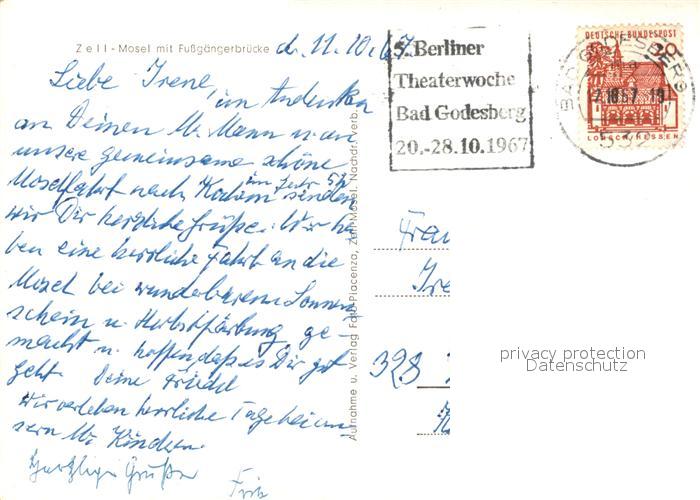 Zell-Mosel mit Fußgängerbrücke d. 11.10.67.
Liebe Irene,
im Andenken
an Deinen lb. Mann u. an
unsere gemeinsame schöne
Moselfahrt nach Kochem im Jahr 59 senden
wir Dir herzliche Grüße. Wir ha-
ben eine herrliche Fahrt an die
Mosel bei wunderbarem Sonnen-
schein u. Herbstfärbung ge-
macht u. hoffen, dass es Dir gut
geht. Deine Friedel
Wir verleben herrliche Tage bei un-
sern lb. Kindern.
Herzliche Grüße
Aufnahme u. Verlag Foto Piacenza, Zell-Mosel. Nachdr. verb.
5. Berliner
Theaterwoche
Bad Godesberg
20.-28.10.1967
BAD GODESBERG
532
DEUTSCHE BUNDESPOST
20
LORSCH/HESSEN
Frau
Ire
328
privacy protection
Datenschutz